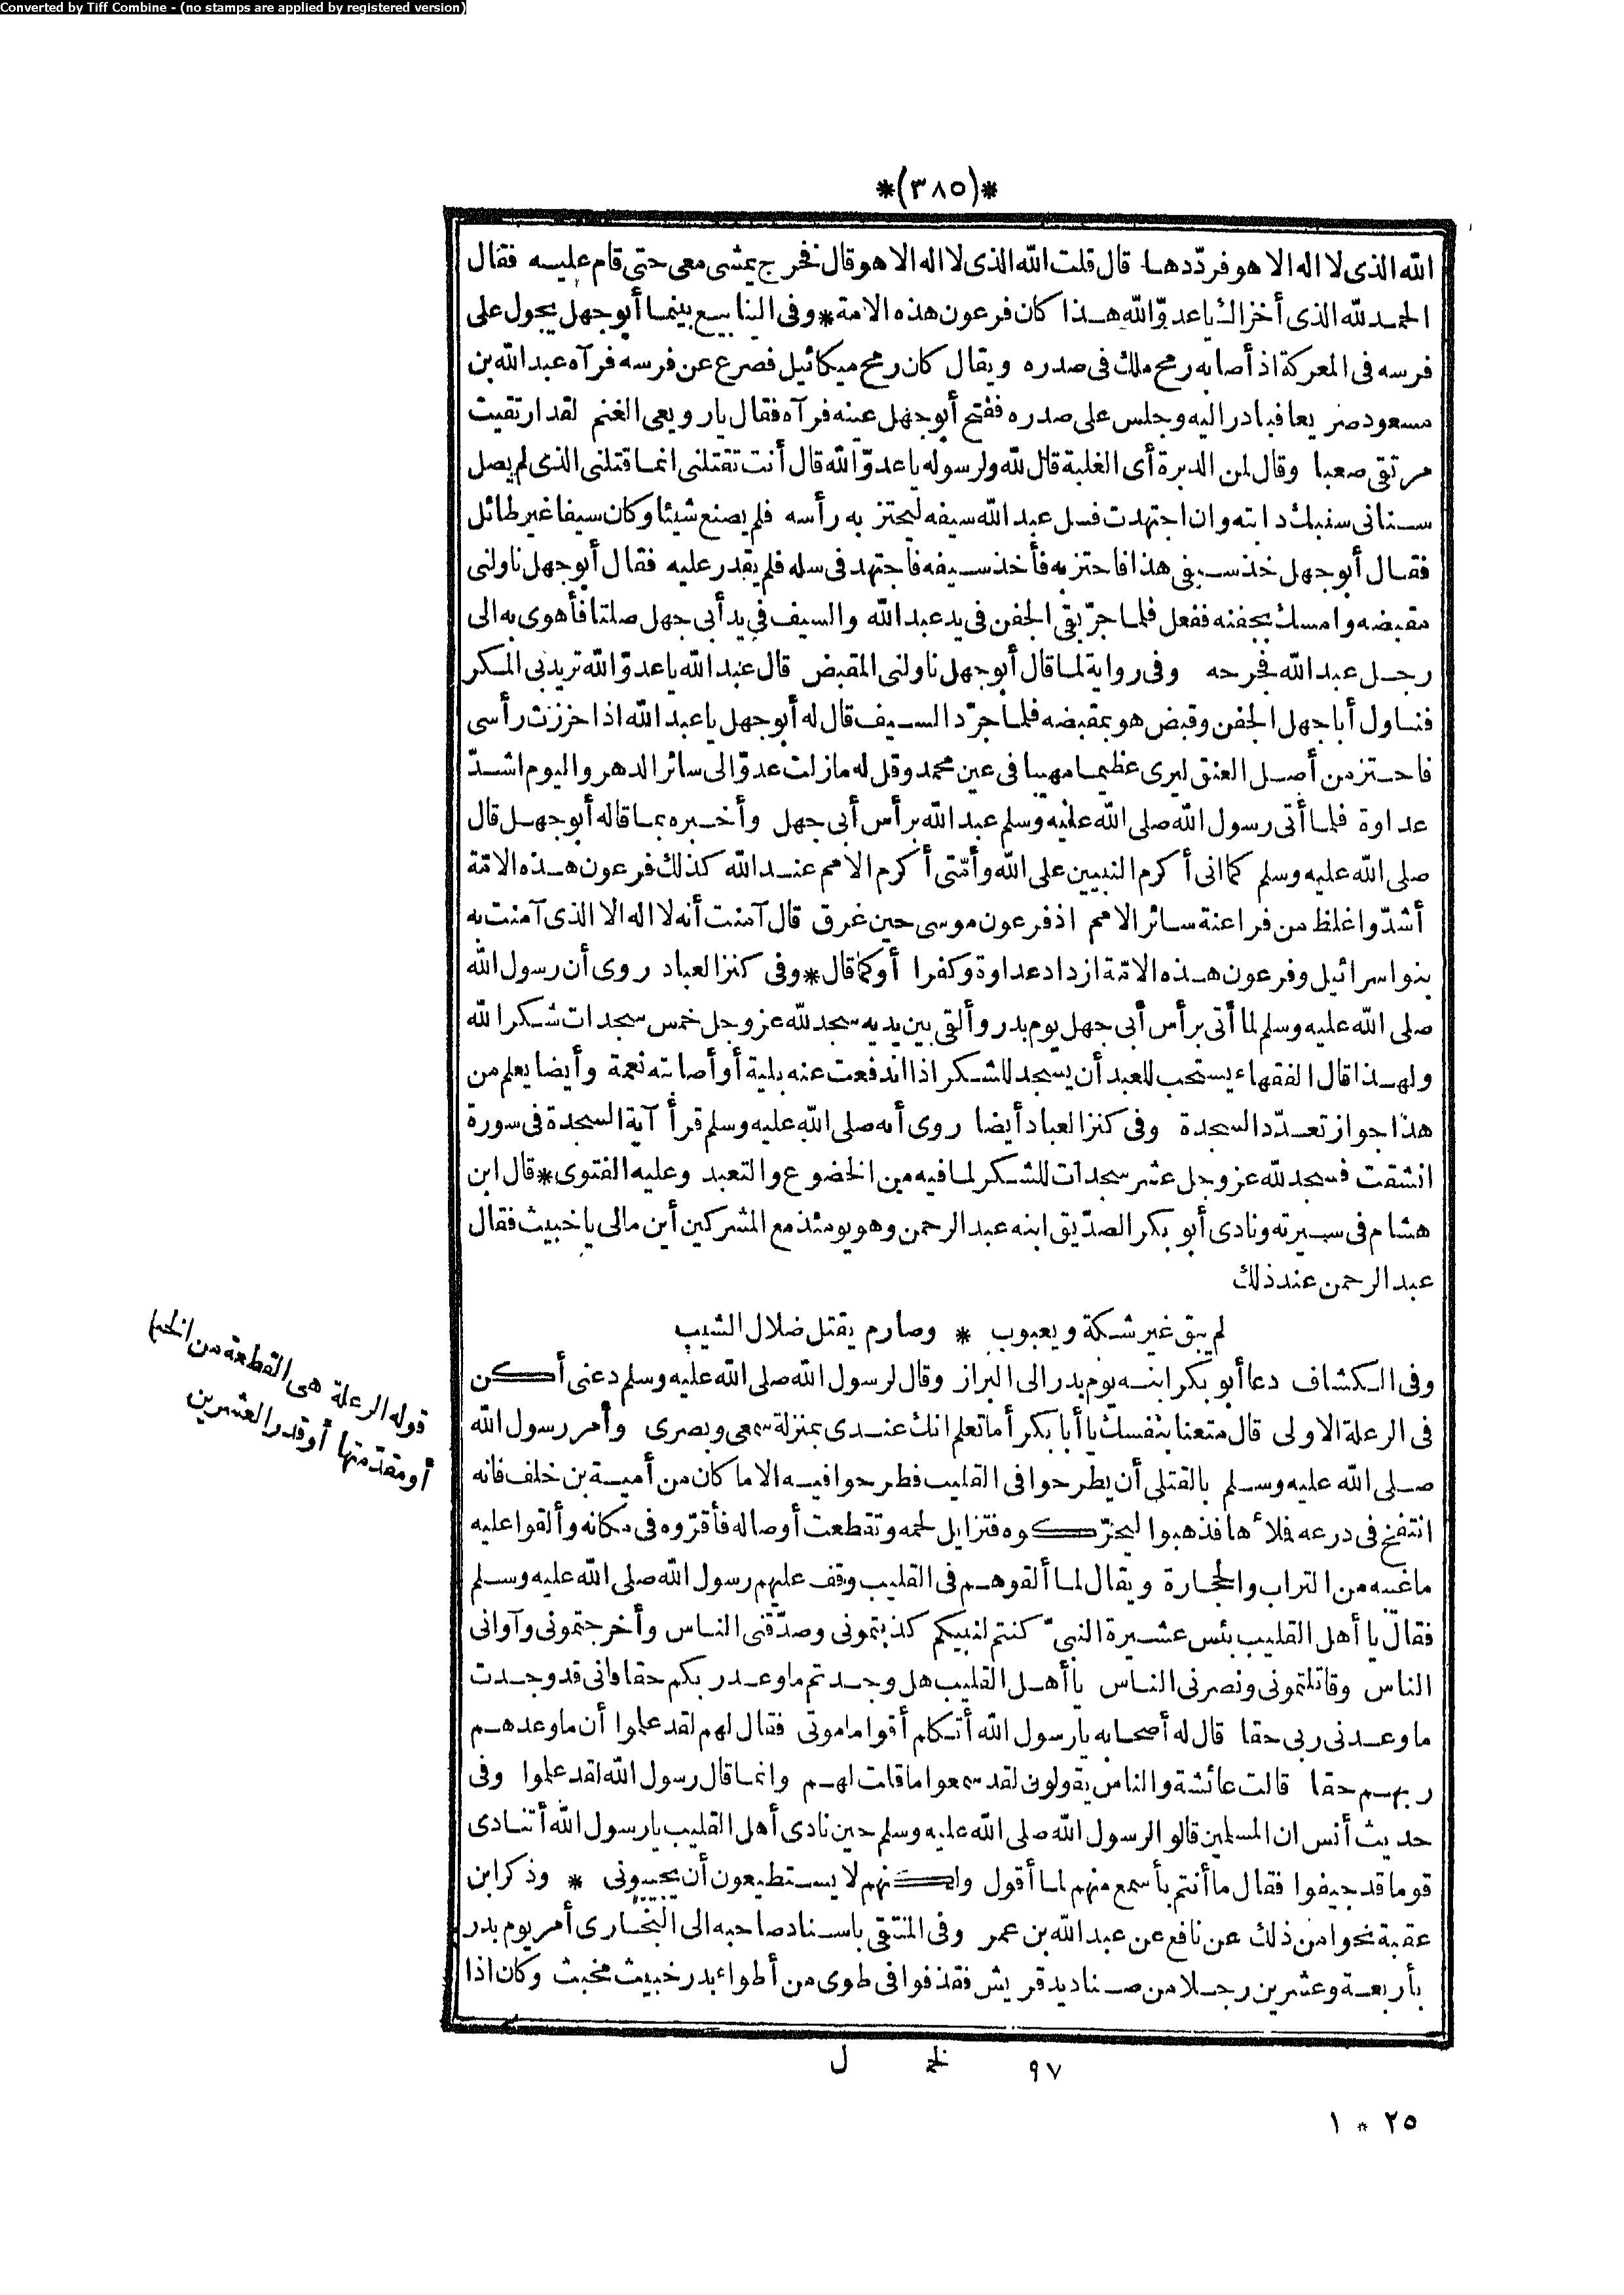 Converted by Tiff Combine - (no stamps are applied by registered version)
*(٣٨٥)*
الله الذى لا اله الا هو فردّدها قال قلت الله الذى لا اله الا هو قال فخرج يمشى معى حتى قام عليه فقال
الحمد لله الذى أخزاك يا عدوّ الله هذا كان فرعون هذه الامة * وفى الينابيع بينما أبو جهل يجول على
فرسه فى المعركة اذ أصابه رمح ملك فى صدره ويقال كان رمح ميكائيل فصرع عن فرسه فرآه عبد الله بن
مسعود صريعا فبادر اليه وجلس على صدره ففتح أبو جهل عينه فرآه فقال يا رويعى الغنم لقد ارتقيت
مرتقى صعبا وقال لمن الدبرة أى الغلبة قال لله ولرسوله يا عدوّ الله قال أنت تقتلنى انما قتلنى الذى لم يصل
سنانى سنبك دابته وان اجتهدت فسل عبد الله سيفه ليحتز به رأسه فلم يصنع شيئا وكان سيفا غير طائل
فقال أبو جهل خذ سيفى هذا فاحتز به فأخذ سيفه فاجتهد فى سله فلم يقدر عليه فقال أبو جهل ناولنى
مقبضه وامسك بجفنه ففعل فلما جرّ بقى الجفن فى يد عبد الله والسيف فى يد أبى جهل صلتا فأهوى به الى
رجل عبد الله فجرحه وفى رواية لما قال أبو جهل ناولنى المقبض قال عبد الله يا عدوّ الله تريد بى المكر
فناول أبا جهل الجفن وقبض هو بمقبضه فلما جرّد السيف قال له أبو جهل يا عبد الله اذا حززت رأسى
فاحتز من أصل العنق ليرى عظيما مهيبا فى عين محمد وقل له مازلت عدوّا لى سائر الدهر واليوم اشدّ
عداوة فلما أتى رسول الله صلى الله عليه وسلم عبد الله برأس أبى جهل وأخبره بما قاله أبو جهل قال
صلى الله عليه وسلم كما انى أكرم النبيين على الله وأمّتى أكرم الامم عند الله كذلك فرعون هذه الامّة
أشدّ واغلظ من فراعنة سائر الامم اذ فرعون موسى حين غرق قال آمنت أنه لا اله الا الذى آمنت به
بنو اسرائيل وفرعون هذه الامّة ازداد عداوة وكفرا أو كما قال * وفى كنز العباد روى أن رسول الله
صلى الله عليه وسلم لما أتى برأس أبى جهل يوم بدر وألقى بين يديه سجد لله عز وجل خمس سجدات شكرا لله
ولهذا قال الفقهاء يستحب للعبد أن يسجد للشكر اذا اندفعت عنه بلية أو أصابته نعمة وأيضا يعلم من
هذا جواز تعدّد السجدة وفى كنز العباد أيضا روى أنه صلى الله عليه وسلم قرأ آية السجدة فى سورة
انشقت فسجد لله عز وجل عشر سجدات للشكر لما فيه من الخضوع والتعبد وعليه الفتوى * قال ابن
هشام فى سيرته ونادى أبو بكر الصدّيق ابنه عبد الرحمن وهو يومئذ مع المشركين أين مالى يا خبيث فقال
عبد الرحمن عند ذلك
لم يبق غير شكة ويعبوب * وصارم يقتل ضلال الشيب
وفى الكشاف دعا أبو بكر ابنه يوم بدر الى البراز وقال لرسول الله صلى الله عليه وسلم دعنى أكن
فى الرعلة الاولى قال متعنا بنفسك يا أبا بكر أما تعلم انك عندى بمنزلة سمعى وبصرى وأمر رسول الله
صلى الله عليه وسلم بالقتلى أن يطرحوا فى القليب فطرحوا فيه الا ما كان من أمية بن خلف فانه
انتفخ فى درعه فلأها فذهبوا ليحرّكوه فتزايل لحمه وتقطعت أوصاله فأقرّوه فى مكانه وألقوا عليه
ما غيبه من التراب والحجارة ويقال لما ألقوهم فى القليب وقف عليهم رسول الله صلى الله عليه وسلم
فقال يا أهل القليب بئس عشيرة النبىّ كنتم لنبيكم كذبتمونى وصدّقنى الناس وأخرجتمونى وآوانى
الناس وقاتلتمونى ونصرنى الناس يا أهل القليب هل وجدتم ما وعد ربكم حقا وانى قد وجدت
ما وعدنى ربى حقا قال له أصحابه يا رسول الله أتكلم أقواما موتى فقال لهم لقد علموا أن ما وعدهم
ربهم حقا قالت عائشة والناس يقولون لقد سمعوا ما قلت لهم وانما قال رسول الله لقد علموا وفى
حديث أنس ان المسلمين قالوا لرسول الله صلى الله عليه وسلم حين نادى أهل القليب يا رسول الله أتنادى
قوما قد جيفوا فقال ما أنتم بأسمع منهم لما أقول ولكنهم لا يستطيعون أن يجيبونى * وذكر ابن
عقبة نحوا من ذلك عن نافع عن عبد الله بن عمر وفى المنتقى باسناد صاحبه الى البخارى أمر يوم بدر
بأربعة وعشرين رجلا من صناديد قريش فقذفوا فى طوى من أطواء بدر خبيث مخبث وكان اذا
قوله الرعلة هى القطعة من الخيل
أو مقدّمتها أو قدر العشرين
٩٧ نخ ل
٢٥ * ١